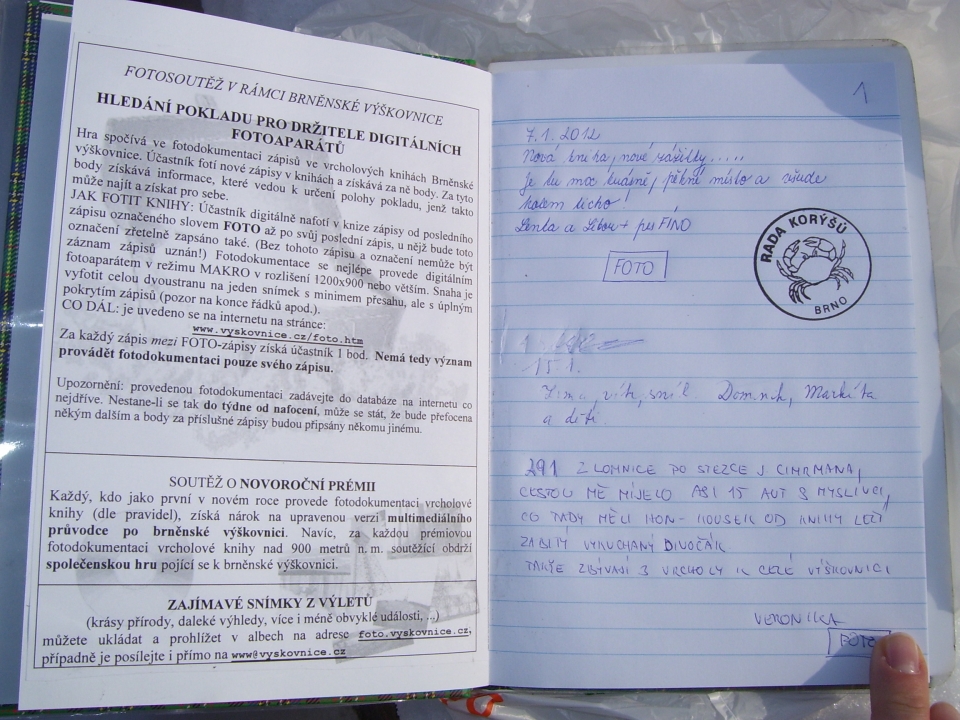 FOTOSOUTĚŽ V RÁMCI BRNĚNSKÉ VÝŠKOVNICE
HLEDÁNÍ POKLADU PRO DRŽITELE DIGITÁLNÍCH
FOTOAPARÁTŮ
Hra spočívá ve fotodokumentaci zápisů ve vrcholových knihách Brněnské
výškovnice. Účastník fotí nové zápisy v knihách a získává za ně body. Za tyto
body získává informace, které vedou k určení polohy pokladu, jenž takto
může najít a získat pro sebe.
JAK FOTIT KNIHY: Účastník digitálně nafotí v knize zápisy od posledního
zápisu označeného slovem FOTO až po svůj poslední zápis, u nějž bude toto
označení zřetelně zapsáno také. (Bez tohoto zápisu a označení nemůže být
záznam zápisů uznán!) Fotodokumentace se nejlépe provede digitálním
fotoaparátem v režimu MAKRO v rozlišení 1200x900 nebo větším. Snaha je
vyfotit celou dvoustranu na jeden snímek s minimem přesahu, ale s úplným
pokrytím zápisů (pozor na konce řádků apod.).
CO DÁL: je uvedeno se na internetu na stránce:
www.vyskovnice.cz/foto.htm
Za každý zápis mezi FOTO-zápisy získá účastník 1 bod. Nemá tedy význam
provádět fotodokumentaci pouze svého zápisu.
Upozornění: provedenou fotodokumentaci zadávejte do databáze na internetu co
nejdříve. Nestane-li se tak do týdne od nafocení, může se stát, že bude přefocena
někým dalším a body za příslušné zápisy budou připsány někomu jinému.
SOUTĚŽ O NOVOROČNÍ PRÉMII
Každý, kdo jako první v novém roce provede fotodokumentaci vrcholové
knihy (dle pravidel), získá nárok na upravenou verzi multimediálního
průvodce po brněnské výškovnici. Navíc, za každou prémiovou
fotodokumentaci vrcholové knihy nad 900 metrů n. m. soutěžící obdrží
společenskou hru pojící se k brněnské výškovnici.
ZAJÍMAVÉ SNÍMKY Z VÝLETŮ
(krásy přírody, daleké výhledy, více i méně obvyklé události, ...)
můžete ukládat a prohlížet v albech na adrese foto.vyskovnice.cz,
případně je posílejte i přímo na www@vyskovnice.cz
1
7.1. 2012
Nová kniha, nové zážitky.....
Je tu moc krásně, pěkné místo a všude
kolem ticho!
Lenka a Libor + pes FÍNO
FOTO
RADA KORÝŠŮ
BRNO
15 1.
Zima, vítr, sníh Dominik, Markéta
a děti
291 Z LOMNICE PO STEZCE J. CIMRMANA,
CESTOU MĚ MÍJELO ASI 15 AUT S MYSLIVCI,
CO TADY MĚLI HON - KOUSEK OD KNIHY LEŽÍ
ZABITÝ VYKUCHANÝ DIVOČÁK.
TAKŽE ZBÝVAJÍ 3 VRCHOLY K CELÉ VÝŠKOVNICI
VERONIKA
FOTO